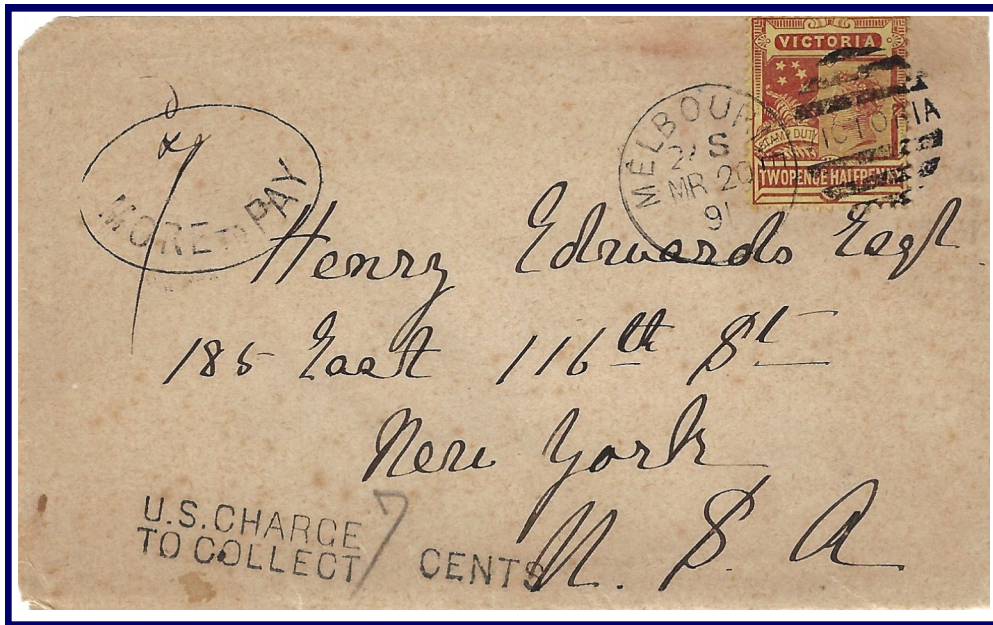 VICTORIA
STAMP DUTY
TWOPENCE HALFPEN
MELBOUR
S
MR 20
91
VICTORIA
7d
MORE TO PAY
Henry Edwards Esqr
185 East 116th St
New York
U. S. A
U.S. CHARGE
TO COLLECT 7 CENTS